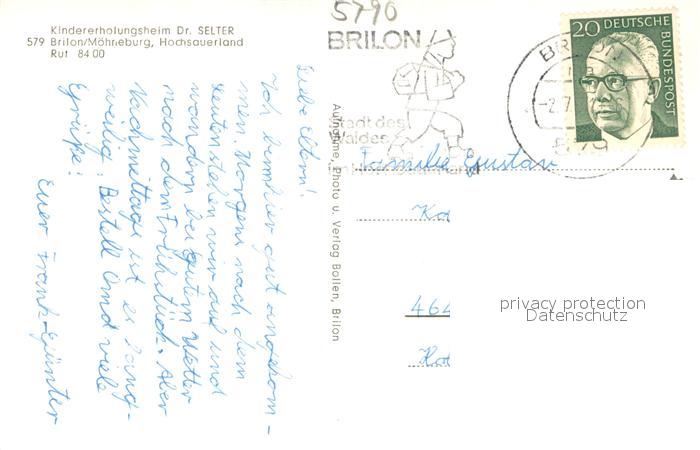 Kindererholungsheim Dr. SELTER
579 Brilon/Möhneburg, Hochsauerland
Ruf 84 00
5790
BRILON
Stadt des
Waldes
20 DEUTSCHE
BUNDESPOST
BRILON
-2.7.
579
Liebe Eltern!
Ich bin hier gut angekom-
men. Morgens nach dem
stehen wir auf und
wandern bei gutem Wetter
nach dem Frühstück. Aber
Nachmittags ist es lang-
weilig. Bestell Omd viele
Grüße!
Euer Frank-Günter
Aufnahme, Photo u. Verlag Bollen, Brilon
Familie Gustav
Ka
464
Ka
privacy protection
Datenschutz